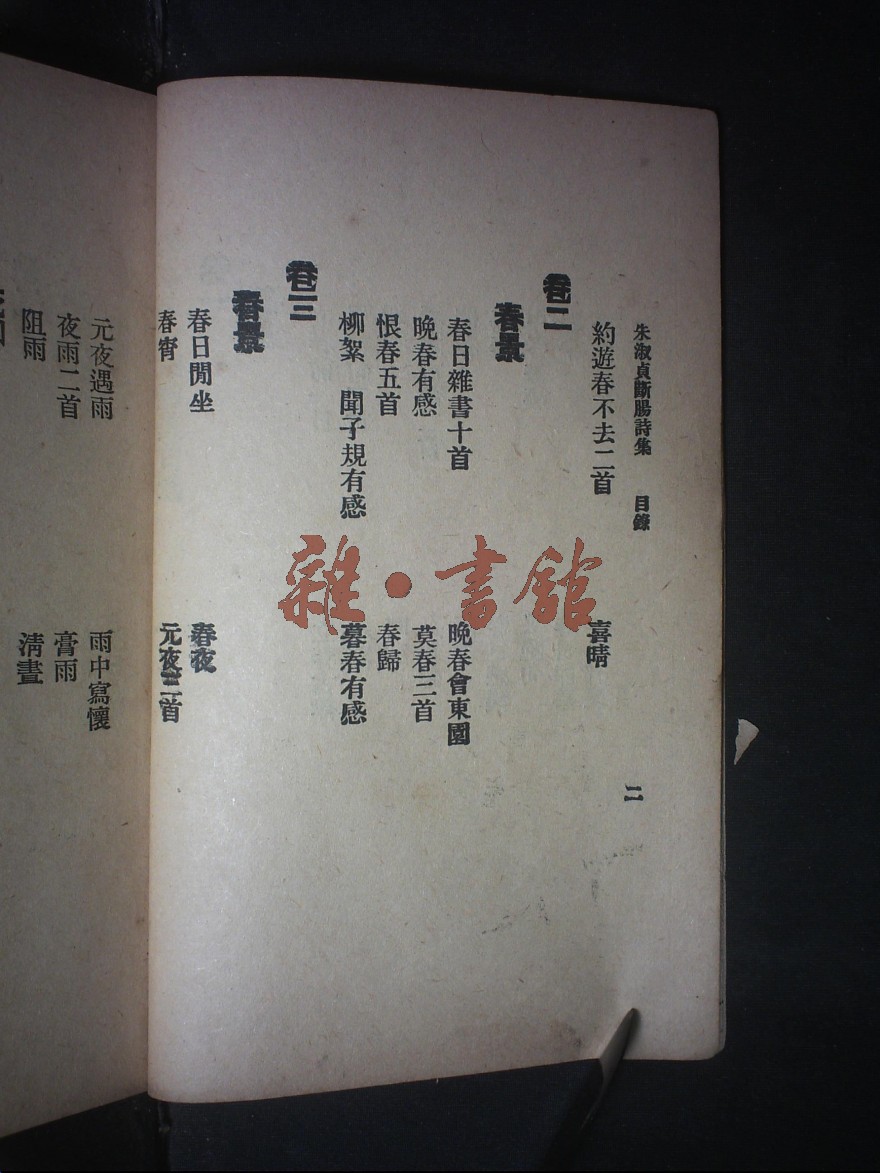 朱淑貞斷腸詩集 目錄 二
約遊春不去二首 喜晴
卷二
春景
春日雜書十首 晚春會東園
晚春有感 莫春三首
恨春五首 春歸
柳絮 聞子規有感 暮春有感
卷三
春景
春日閒坐 春夜
春宵 元夜三首
元夜遇雨 雨中寫懷
夜雨二首 膏雨
阻雨 清晝
雜·書館